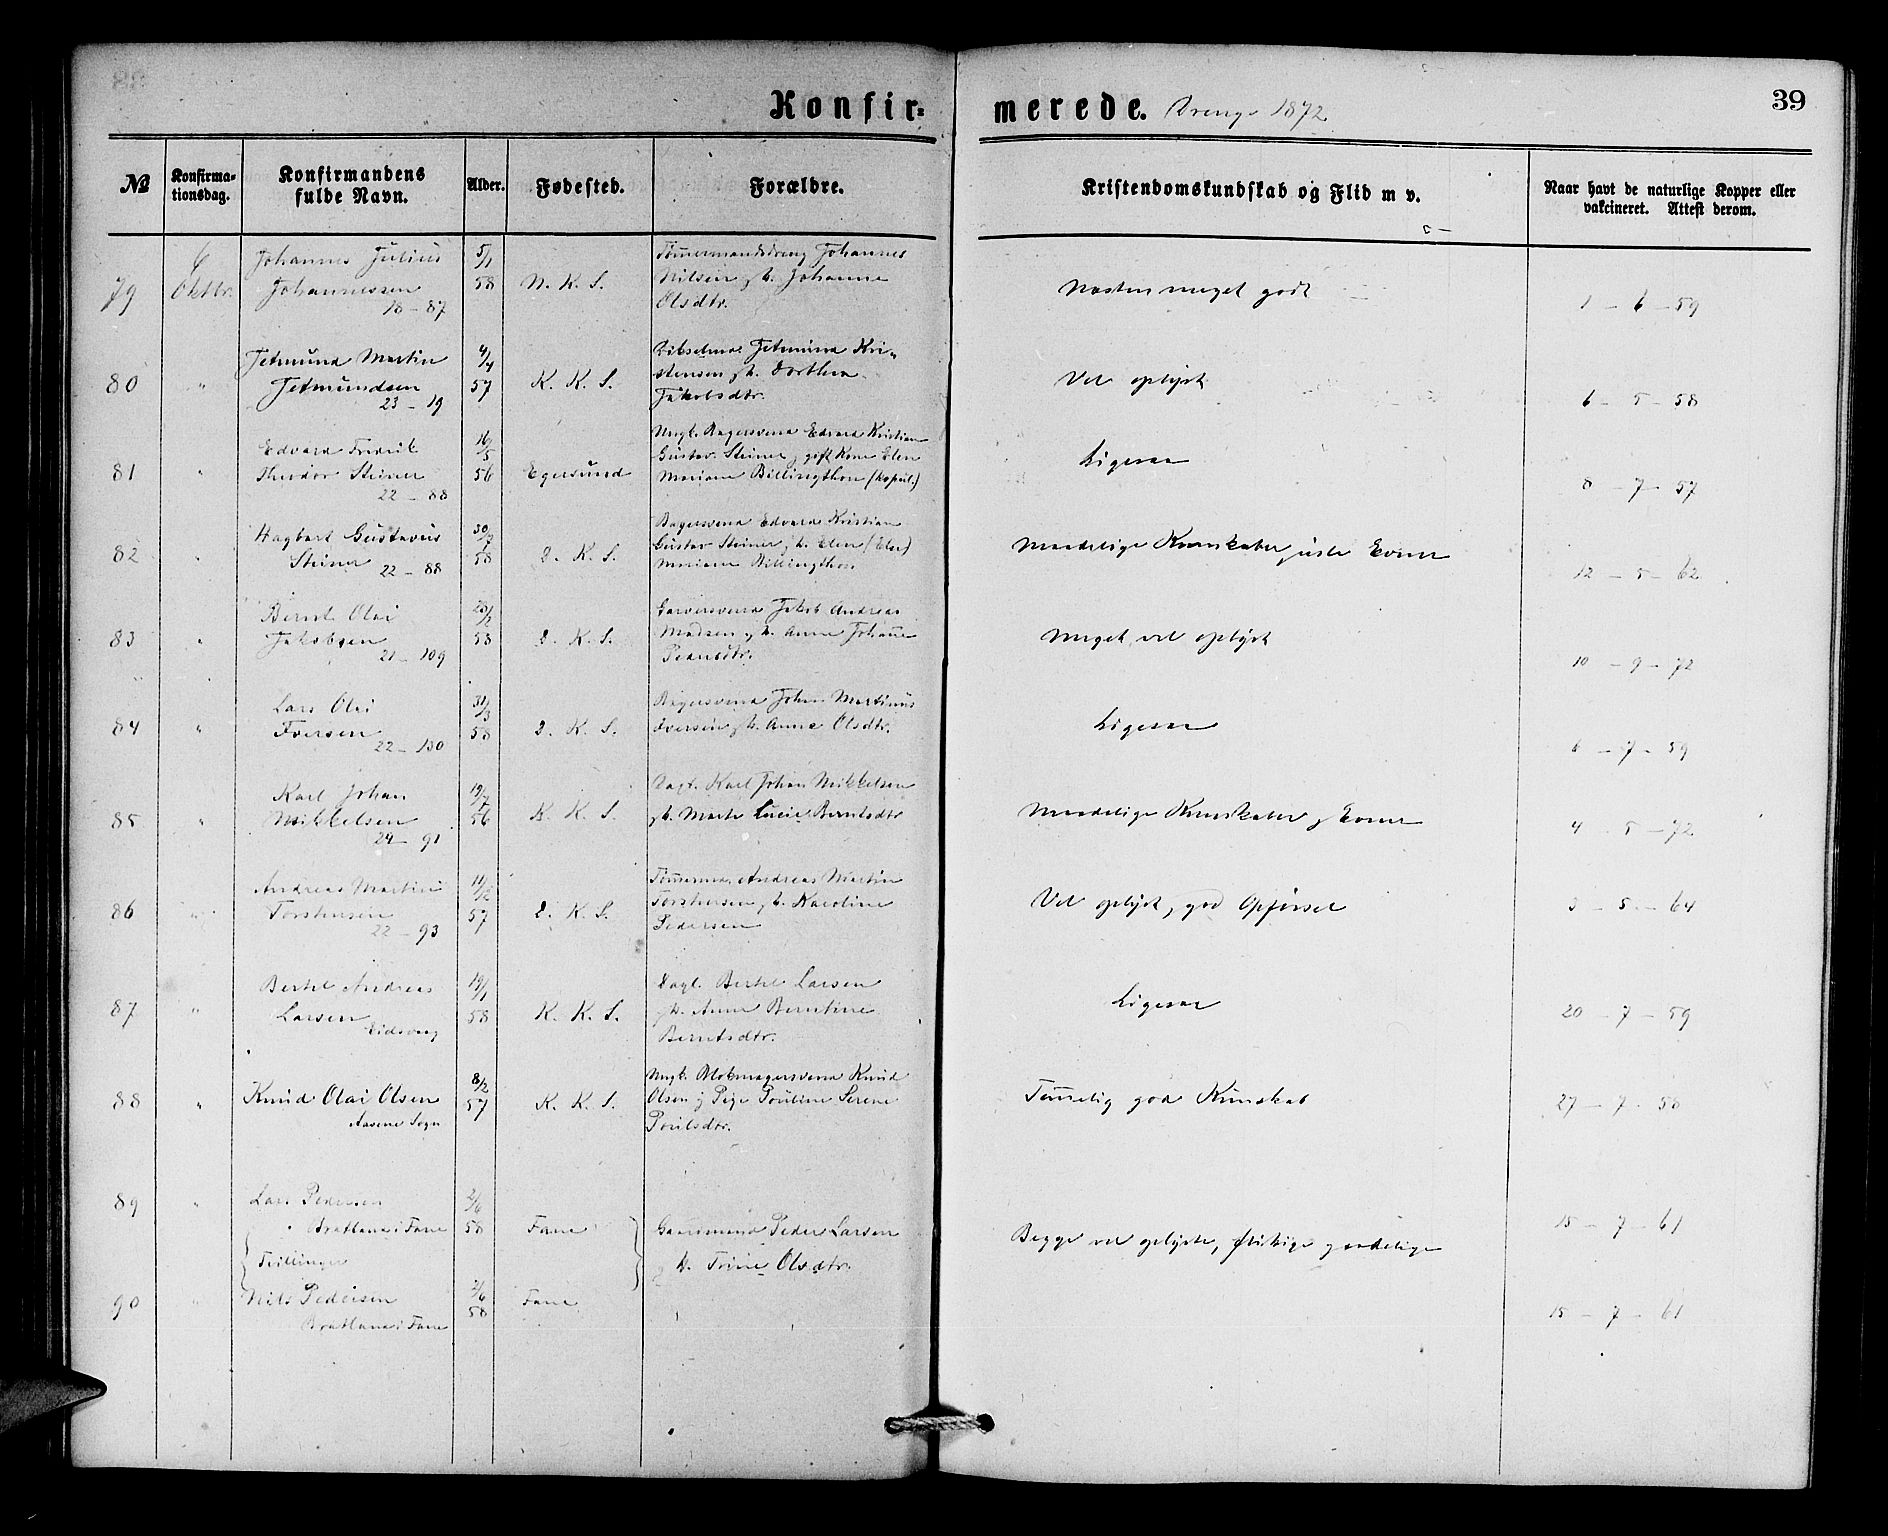 Konfir=
merede. Drenge 1872
39
№
Konfirma-
tionsdag.
Konfirmandens
fulde Navn.
Alder.
Fødested.
Forældre.
Kristendomskundskab og Flid m v.
Naar havt de naturlige Kopper eller
vakcineret. Attest derom.
79
6
Oktbr.
Johannes Julius
Johannessen
18-87
5/1
58
N. K. S.
Johannes
Nilsen g h. Johanne
Olsdtr.
Næsten meget godt
1-6-59
80
"
Jetmund Martin
Jetmundsen
23-19
4/4
57
K. K. S.
Jetmund Kri-
stensen g h. Dorthea
Jakobsdtr.
Vel oplyst
6-5-58
81
"
Edvard Fredrik
Theodor Steiner
22-88
16/5
56
Egersund
Ungk. Bagersvend Edvard Kristian
Gustav Steiner g gift Kone Elen
Mariane Billingthon (kopul.)
Ligesaa
8-7-57
82
"
Hagbart Gustavus
Steiner
22-88
30/7
58
D. K. S.
Bagersvend Edvard Kristian
Gustav Steiner g h. Elen (Else)
Mariane Billingthon
Maadelige Kunskaber, Evner
12-5-62
83
"
Bernt Olai
Jakobsen
21-109
58
D. K. S.
Garversvend Jakob Andreas
Madsen g h. Anne Johanne
Pedersdtr.
Meget vel oplyst
10-9-72
84
"
Lars Olai
Iversen
22-130
31/3
58
D. K. S.
Bagersvend Johan Martinus
Iversen g h. Anne Olsdtr.
Ligesaa
6-7-59
85
"
Karl Johan
Mikkelsen
24-91
19/7
56
K. K. S.
Dagl. Karl Johan Mikkelsen
g h. Marte Lucie Berntsdtr
Maadelige Kunskaber g Evner
4-5-72
86
"
Andreas Martin
Torstensen
22-93
11/12
57
D. K. S.
Tømmermd. Andreas Martin
Torstensen g h. Karoline
Pedersen
Vel oplyst, god Opførsel
3-5-64
87
"
Bertel Andreas
Larsen
Eidsvaag
19/1
58
K. K. S.
Dagl. Bertel Larsen
g h. Anne Berntine
Berntsdtr.
Ligesaa
20-7-59
88
"
Knud Olai Olsen
Aasene Sogn
8/2
57
K. K. S.
Ungk. Blokmagersvend Knud
Olsen g Pige Pouline Serene
Poulsdtr.
Temmelig god Kunskab
27-7-58
89
"
Lars Pedersen
Bratland i Fane
2/6
58
Fane
Gaardmand Peder Larsen
g h. Trine Olsdtr.
Begge vel oplyste, flittige g sædelige
15-7-61
Tvillinger
90
"
Nils Pedersen
Bratland i Fane
2/6
58
Fane
15-7-61